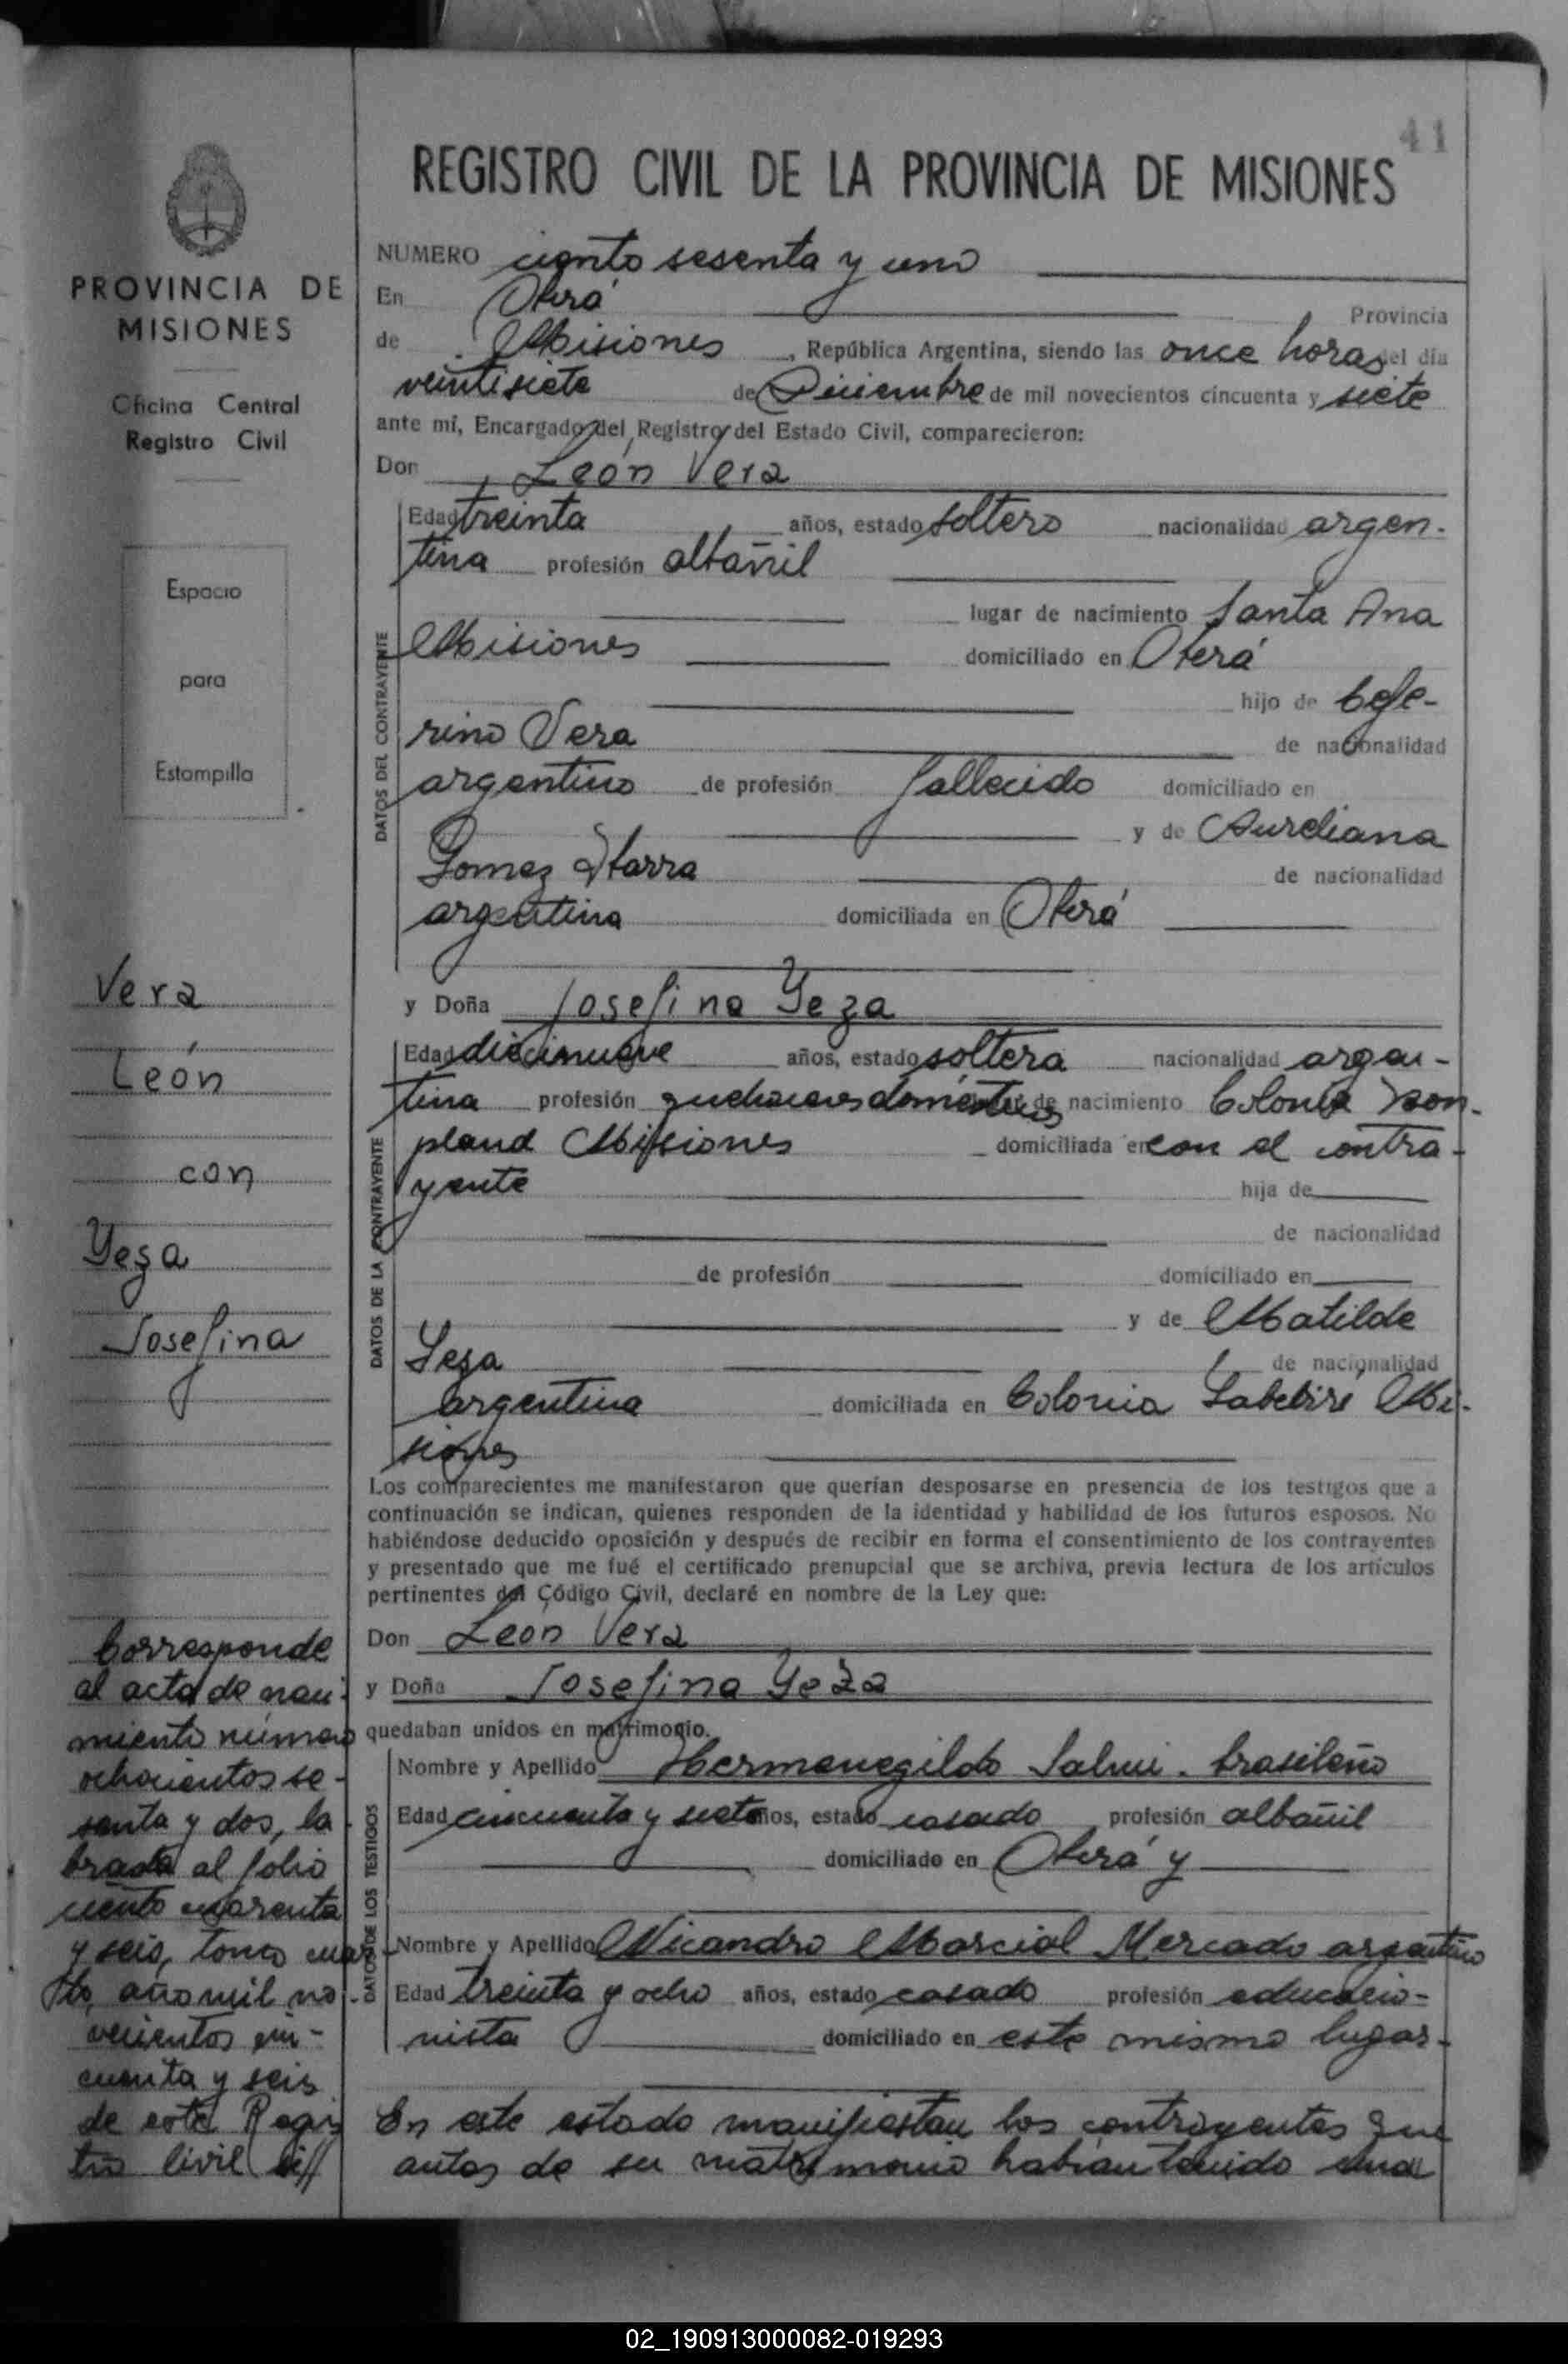 41
REGISTRO CIVIL DE LA PROVINCIA DE MISIONES
PROVINCIA DE
MISIONES
Oficina Central
Registro Civil
Espacio
para
Estampilla
Vera
León
con
Yeza
Josefina
Corresponde
al acta de naci-
miento número
ochocientos se-
senta y dos, la
brada al folio
ciento cuarenta
y seis, tomo cuar-
to, año mil no-
vecientos cin-
cuenta y seis
de este Regis
tro Civil
NUMERO ciento sesenta y uno
En Oberá Provincia
de Misiones, República Argentina, siendo las once horas del día
veintisiete de Diciembre de mil novecientos cincuenta y siete
ante mí, Encargado del Registro del Estado Civil, comparecieron:
Don León Vera
DATOS DEL CONTRAYENTE
Edad treinta años, estado soltero nacionalidad argen-
tina profesión albañil
lugar de nacimiento Santa Ana
Misiones domiciliado en Oberá
hijo de Cefe-
rino Vera de nacionalidad
argentino de profesión fallecido domiciliado en
y de Aureliana
Gomez Ibarra de nacionalidad
argentina domiciliada en Oberá
y Doña Josefina Yeza
DATOS DE LA CONTRAYENTE
Edad diecinueve años, estado soltera nacionalidad argen-
tina profesión quehaceres domésticos de nacimiento Colonia Bon-
pland Misiones domiciliada en con el contra-
yente hija de
de nacionalidad
de profesión domiciliado en
y de Matilde
Yeza de nacionalidad
argentina domiciliada en Colonia Yabebirí Mi-
siones
Los comparecientes me manifestaron que querían desposarse en presencia de los testigos que a
continuación se indican, quienes responden de la identidad y habilidad de los futuros esposos. No
habiéndose deducido oposición y después de recibir en forma el consentimiento de los contrayentes
y presentado que me fué el certificado prenupcial que se archiva, previa lectura de los artículos
pertinentes del Código Civil, declaré en nombre de la Ley que:
Don León Vera
y Doña Josefina Yeza
quedaban unidos en matrimonio.
DATOS DE LOS TESTIGOS
Nombre y Apellido Hermenegildo Salvui. brasileño
Edad cincuenta y siete años, estado casado profesión albañil
domiciliado en Oberá y
Nombre y Apellido Nicandro Marcial Mercado argentino
Edad treinta y ocho años, estado casado profesión educacio-
nista domiciliado en este mismo lugar-
En este estado manifiestan los contrayentes que
antes de su matrimonio habían tenido una
02_190913000082-019293